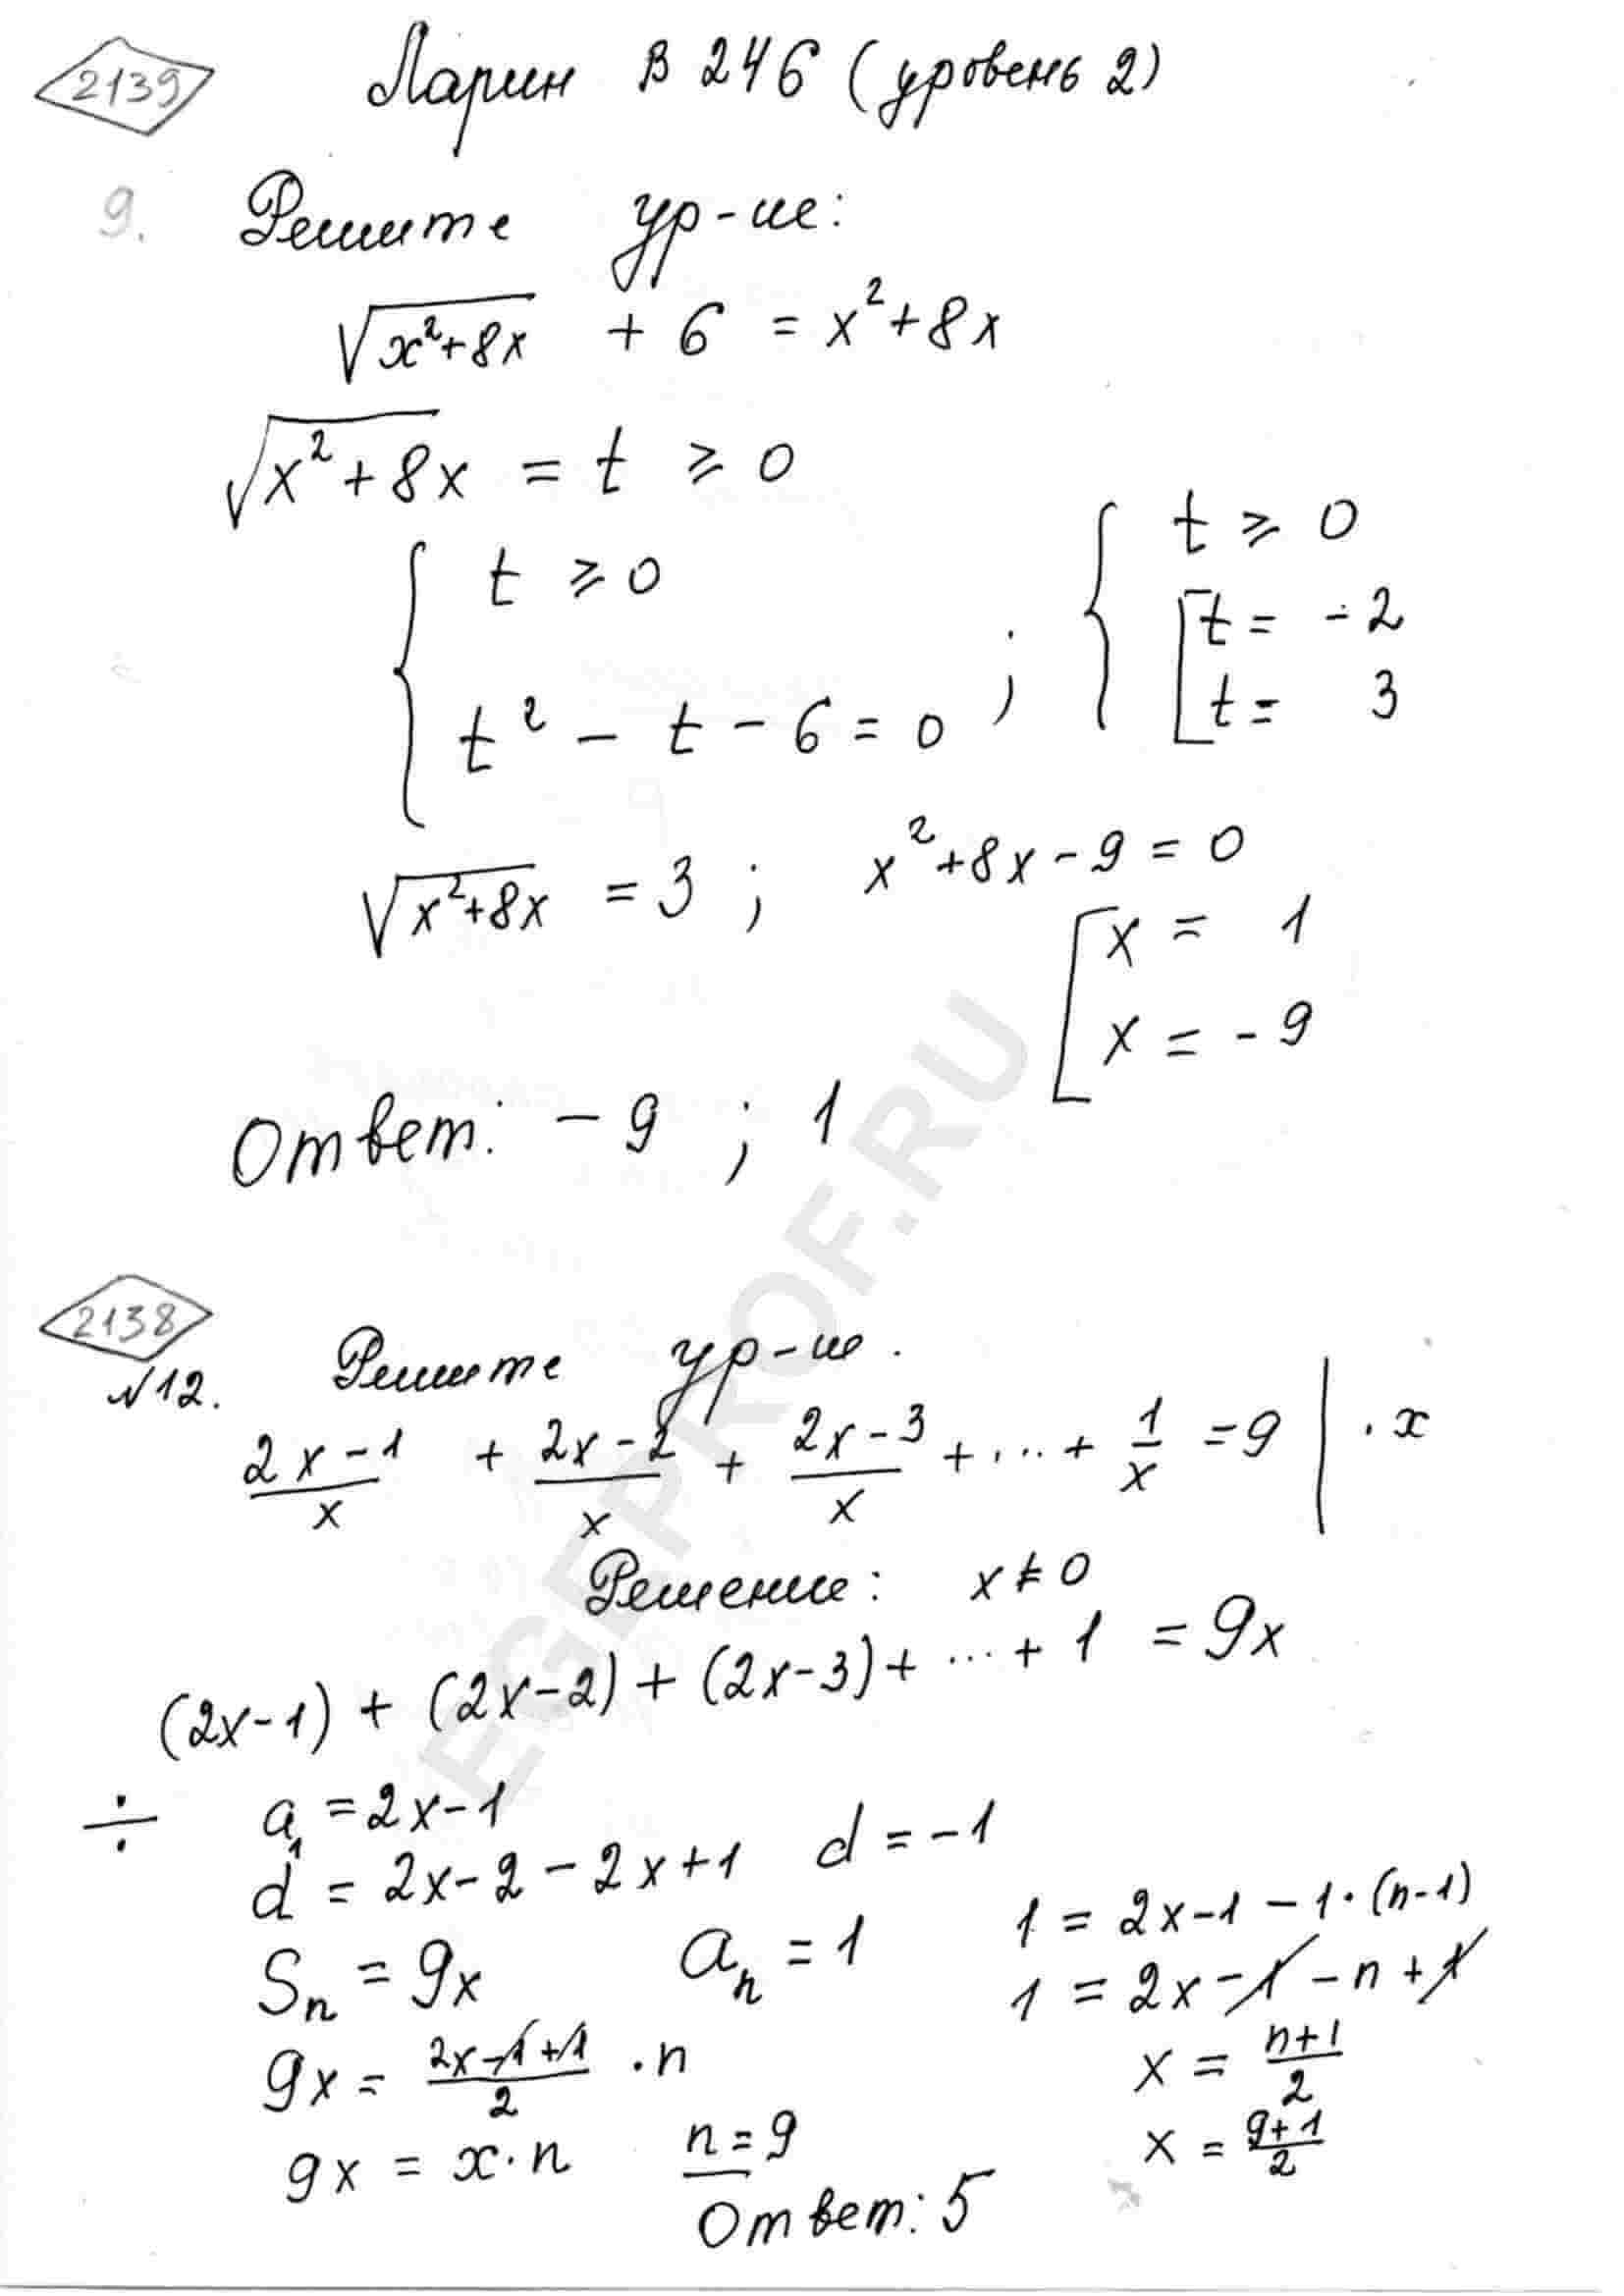 2139 Ларин В 246 (уровень 2)
9. Решите ур-ие:
√(x²+8x) + 6 = x²+8x
√(x²+8x) = t ≥ 0
{ t ≥ 0
t² - t - 6 = 0 ;
{ t ≥ 0
[ t = -2
t = 3
√(x²+8x) = 3 ; x²+8x-9 = 0
[ x = 1
x = -9
Ответ: -9 ; 1
2138
N12. Решите ур-ие.
(2x-1)/x + (2x-2)/x + (2x-3)/x + ... + 1/x = 9 | · x
Решение: x ≠ 0
(2x-1) + (2x-2) + (2x-3) + ... + 1 = 9x
÷ a₁ = 2x-1
d = 2x-2-2x+1 d = -1
Sₙ = 9x aₙ = 1
1 = 2x-1-1·(n-1)
1 = 2x-1-n+1
9x = (2x-1+1)/2 · n
x = (n+1)/2
9x = x·n n = 9
x = (9+1)/2
Ответ: 5
EGEPROF.RU